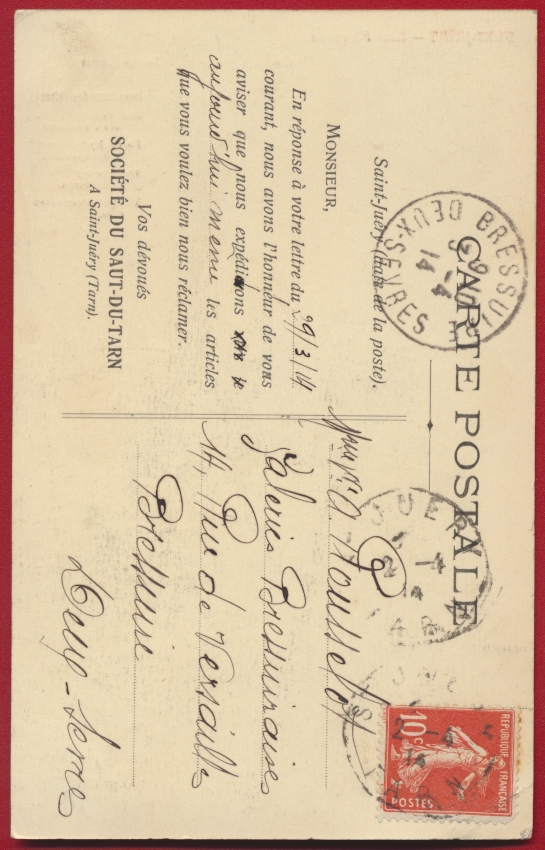 CARTE POSTALE
Saint-Juéry (date de la poste).
MONSIEUR,
En réponse à votre lettre du 29/3/14
courant, nous avons l'honneur de vous
aviser que nous expédions ce
aujourd'hui meme les articles
que vous voulez bien nous réclamer.
Vos dévoués
SOCIÉTÉ DU SAUT-DU-TARN
A Saint-Juéry (Tarn).
A Rousselot
Galeries Bressuiraises
14, Rue de Versailles
Bressuire
Deux-Sevres
BRESSUIRE
DEUX-SEVRES
14
JUERY
REPUBLIQUE FRANÇAISE
10c
POSTES